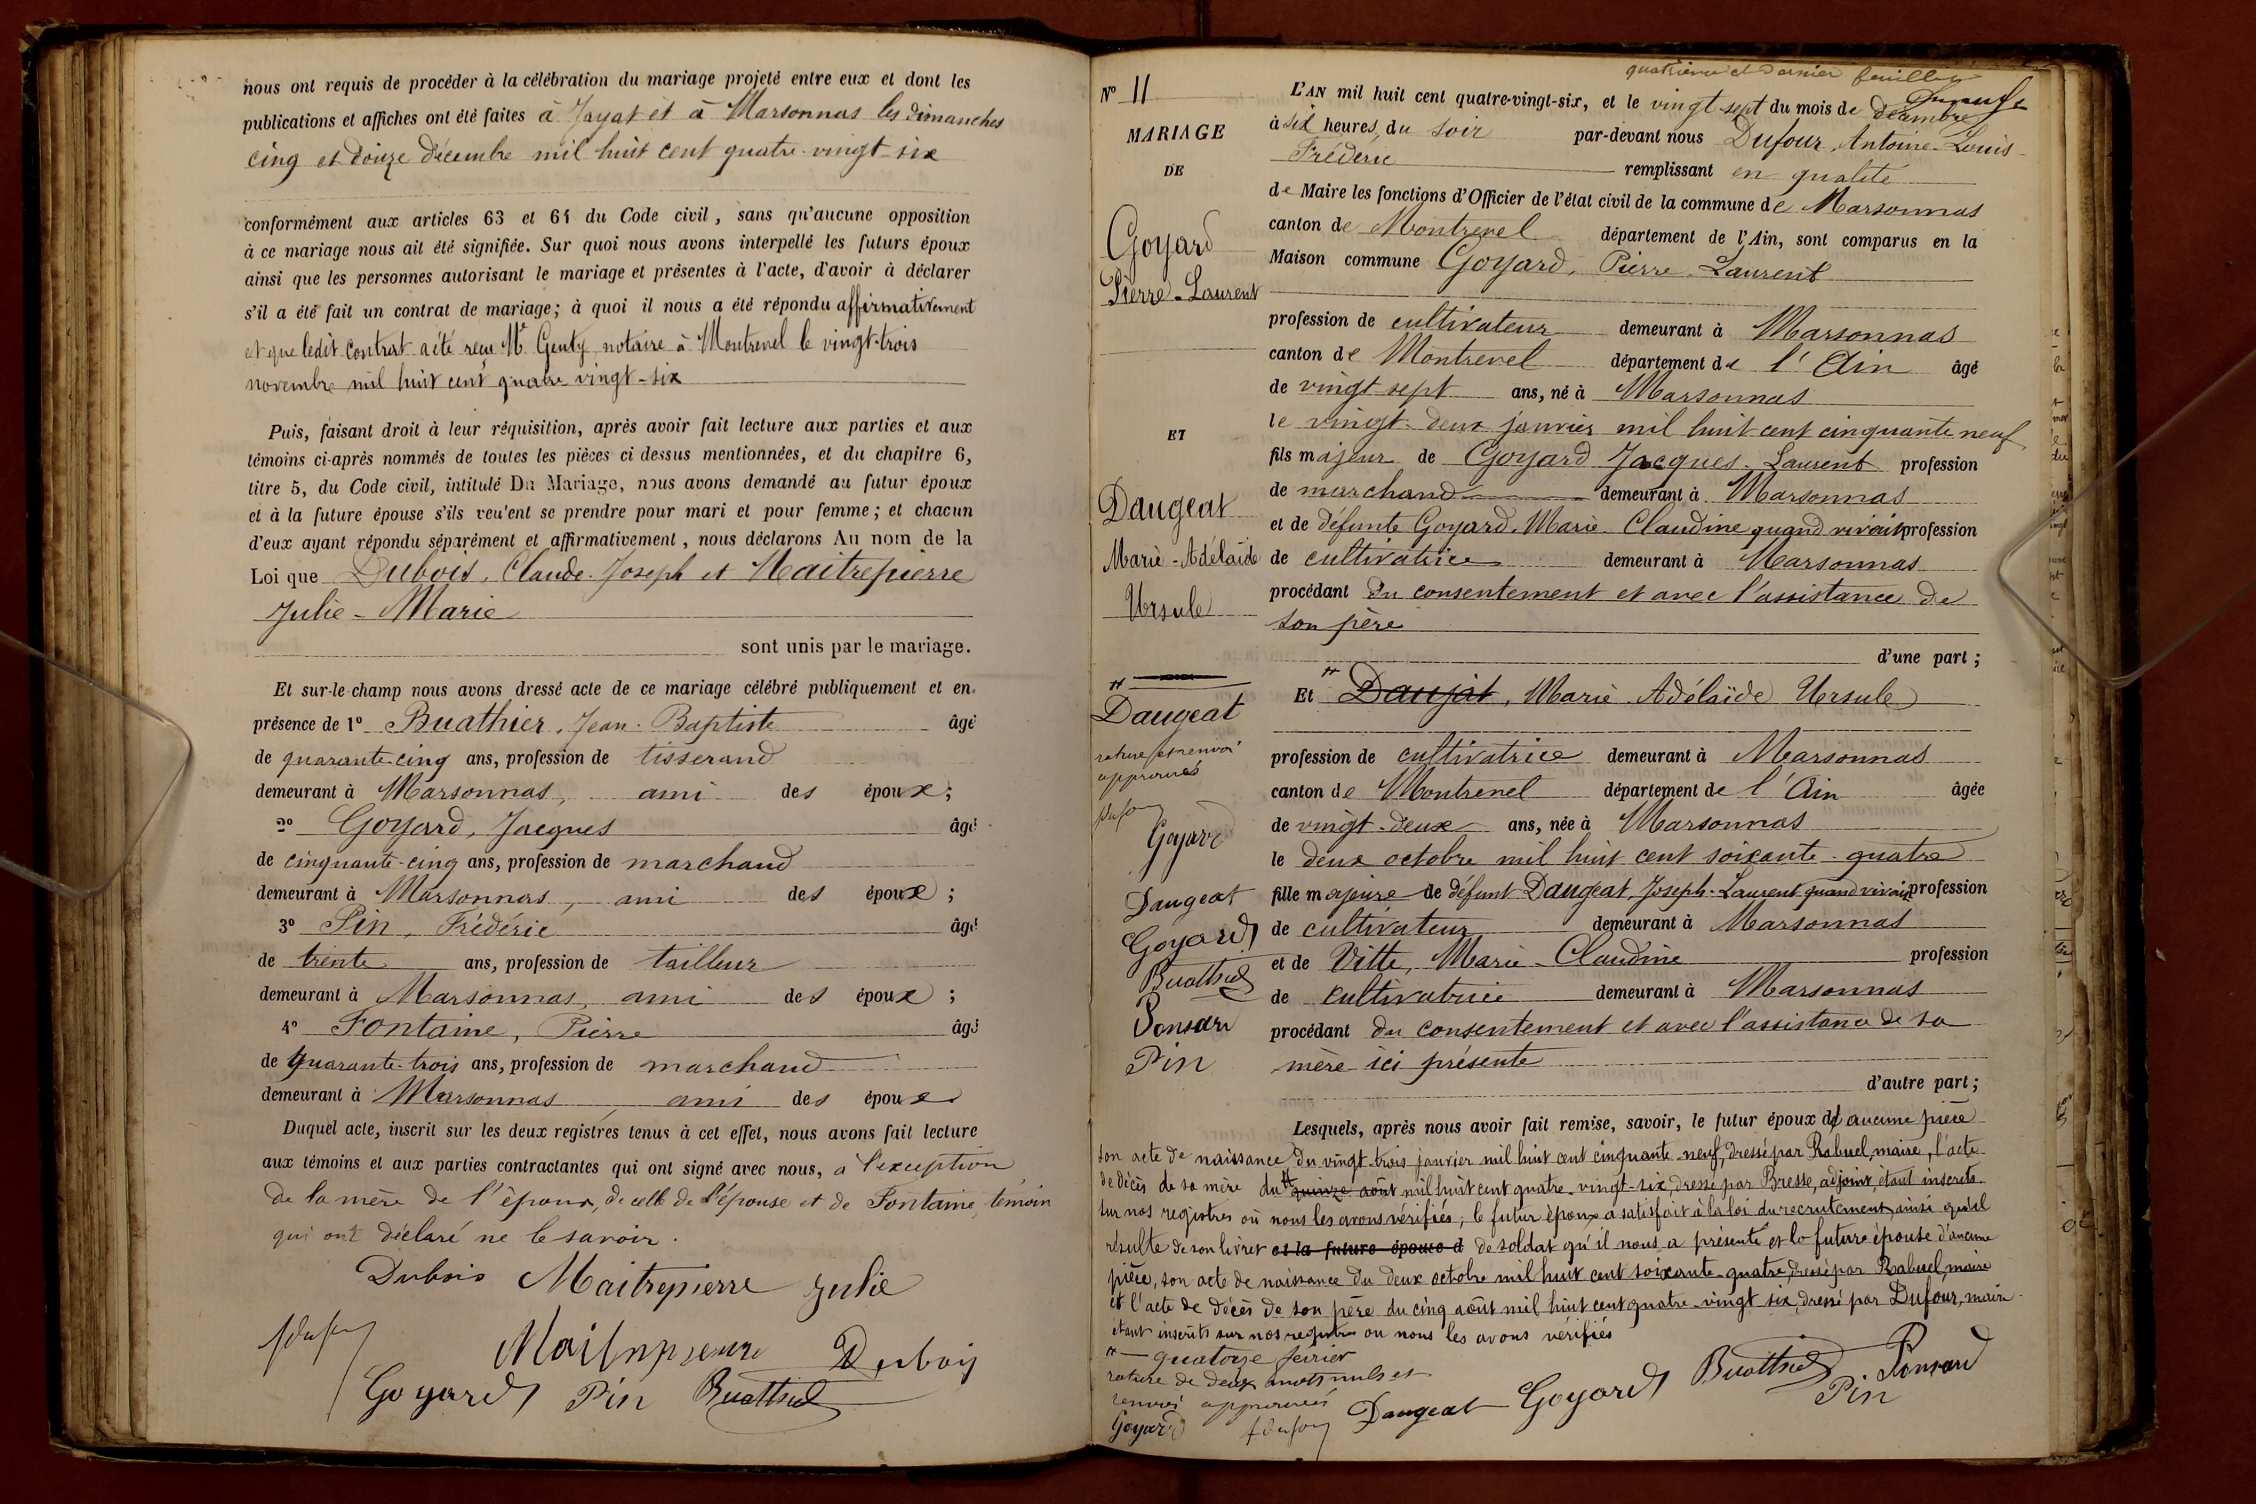 nous ont requis de procéder à la célébration du mariage projeté entre eux et dont les
publications et affiches ont été faites à Jayat et à Marsonnas les dimanches
cinq et douze décembre mil huit cent quatre-vingt-six
conformément aux articles 63 et 64 du Code civil, sans qu'aucune opposition
à ce mariage nous ait été signifiée. Sur quoi nous avons interpellé les futurs époux
ainsi que les personnes autorisant le mariage et présentes à l'acte, d'avoir à déclarer
s'il a été fait un contrat de mariage; à quoi il nous a été répondu affirmativement
et que ledit contrat a été reçu Me Genty notaire à Montrevel le vingt-trois
novembre mil huit cent quatre vingt-six
Puis, faisant droit à leur réquisition, après avoir fait lecture aux parties et aux
témoins ci-après nommés de toutes les pièces ci dessus mentionnées, et du chapitre 6,
titre 5, du Code civil, intitulé Du Mariage, nous avons demandé au futur époux
et à la future épouse s'ils veulent se prendre pour mari et pour femme; et chacun
d'eux ayant répondu séparément et affirmativement, nous déclarons Au nom de la
Loi que Dubois, Claude-Joseph et Maitrepierre
Julie-Marie
sont unis par le mariage.
Et sur-le-champ nous avons dressé acte de ce mariage célébré publiquement et en
présence de 1° Buathier, Jean-Baptiste âgé
de quarante-cinq ans, profession de tisserand
demeurant à Marsonnas, ami des époux;
2° Goyard, Jacques âgé
de cinquante-cinq ans, profession de marchand
demeurant à Marsonnas, ami des époux;
3° Pin, Frédéric âgé
de trente ans, profession de tailleur
demeurant à Marsonnas, ami des époux;
4° Fontaine, Pierre âgé
de quarante-trois ans, profession de marchand
demeurant à Marsonnas, ami des époux
Duquel acte, inscrit sur les deux registres tenus à cet effet, nous avons fait lecture
aux témoins et aux parties contractantes qui ont signé avec nous, à l'exception
de la mère de l'époux, de celle de l'épouse et de Fontaine, témoin
qui ont déclaré ne le savoir.
Dubois Maitrepierre Julie
Dubois
Goyard Pin Buathier
quatrième et dernier feuillet
N° 11
MARIAGE
DE
Goyard
Pierre-Laurent
ET
Daugeat
Marie-Adélaïde
Ursule
Daugeat
rature et renvoi
approuvés
Goyard
Daugeat
Goyard
Buathier
Ponsard
Pin
L'AN mil huit cent quatre-vingt-six, et le vingt-sept du mois de décembre
à six heures du soir par-devant nous Dufour, Antoine-Louis-
Frédéric remplissant en qualité
de Maire les fonctions d'Officier de l'état civil de la commune de Marsonnas
canton de Montrevel département de l'Ain, sont comparus en la
Maison commune Goyard, Pierre-Laurent
profession de cultivateur demeurant à Marsonnas
canton de Montrevel département de l'Ain âgé
de vingt sept ans, né à Marsonnas
le vingt-deux janvier mil huit cent cinquante neuf
fils majeur de Goyard Jacques-Laurent profession
de marchand demeurant à Marsonnas
et de défunte Goyard Marie-Claudine quand vivait profession
de cultivatrice demeurant à Marsonnas
procédant du consentement et avec l'assistance de
son père
d'une part;
Et Daujat, Marie Adélaïde Ursule
profession de cultivatrice demeurant à Marsonnas
canton de Montrevel département de l'Ain âgée
de vingt-deux ans, née à Marsonnas
le deux octobre mil huit cent soixante-quatre
fille majeure de défunt Daugeat, Joseph-Laurent, quand vivait profession
de cultivateur demeurant à Marsonnas
et de Vitte, Marie-Claudine profession
de cultivatrice demeurant à Marsonnas
procédant du consentement et avec l'assistance de sa
mère ici présente
d'autre part;
Lesquels, après nous avoir fait remise, savoir, le futur époux d'aucune pièce
son acte de naissance du vingt-trois janvier mil huit cent cinquante-neuf, dressé par Rabuel, maire, l'acte
de décès de sa mère du quinze août mil huit cent quatre-vingt-six, dressé par Bresse, adjoint, étant inscrits
sur nos registres où nous les avons vérifiés; le futur époux a satisfait à la loi du recrutement, ainsi qu'il
résulte de son livret et la future épouse d de soldat qu'il nous a présenté et la future épouse d'aucune
pièce, son acte de naissance du deux octobre mil huit cent soixante-quatre, dressé par Rabuel, maire
et l'acte de décès de son père du cinq août mil huit cent quatre-vingt six, dressé par Dufour, maire
étant inscrits sur nos registres où nous les avons vérifiés
quatorze février
rature de deux mots nuls et
renvoi approuvés
Goyard Daugeat Goyard Buathier Pin Ponsard